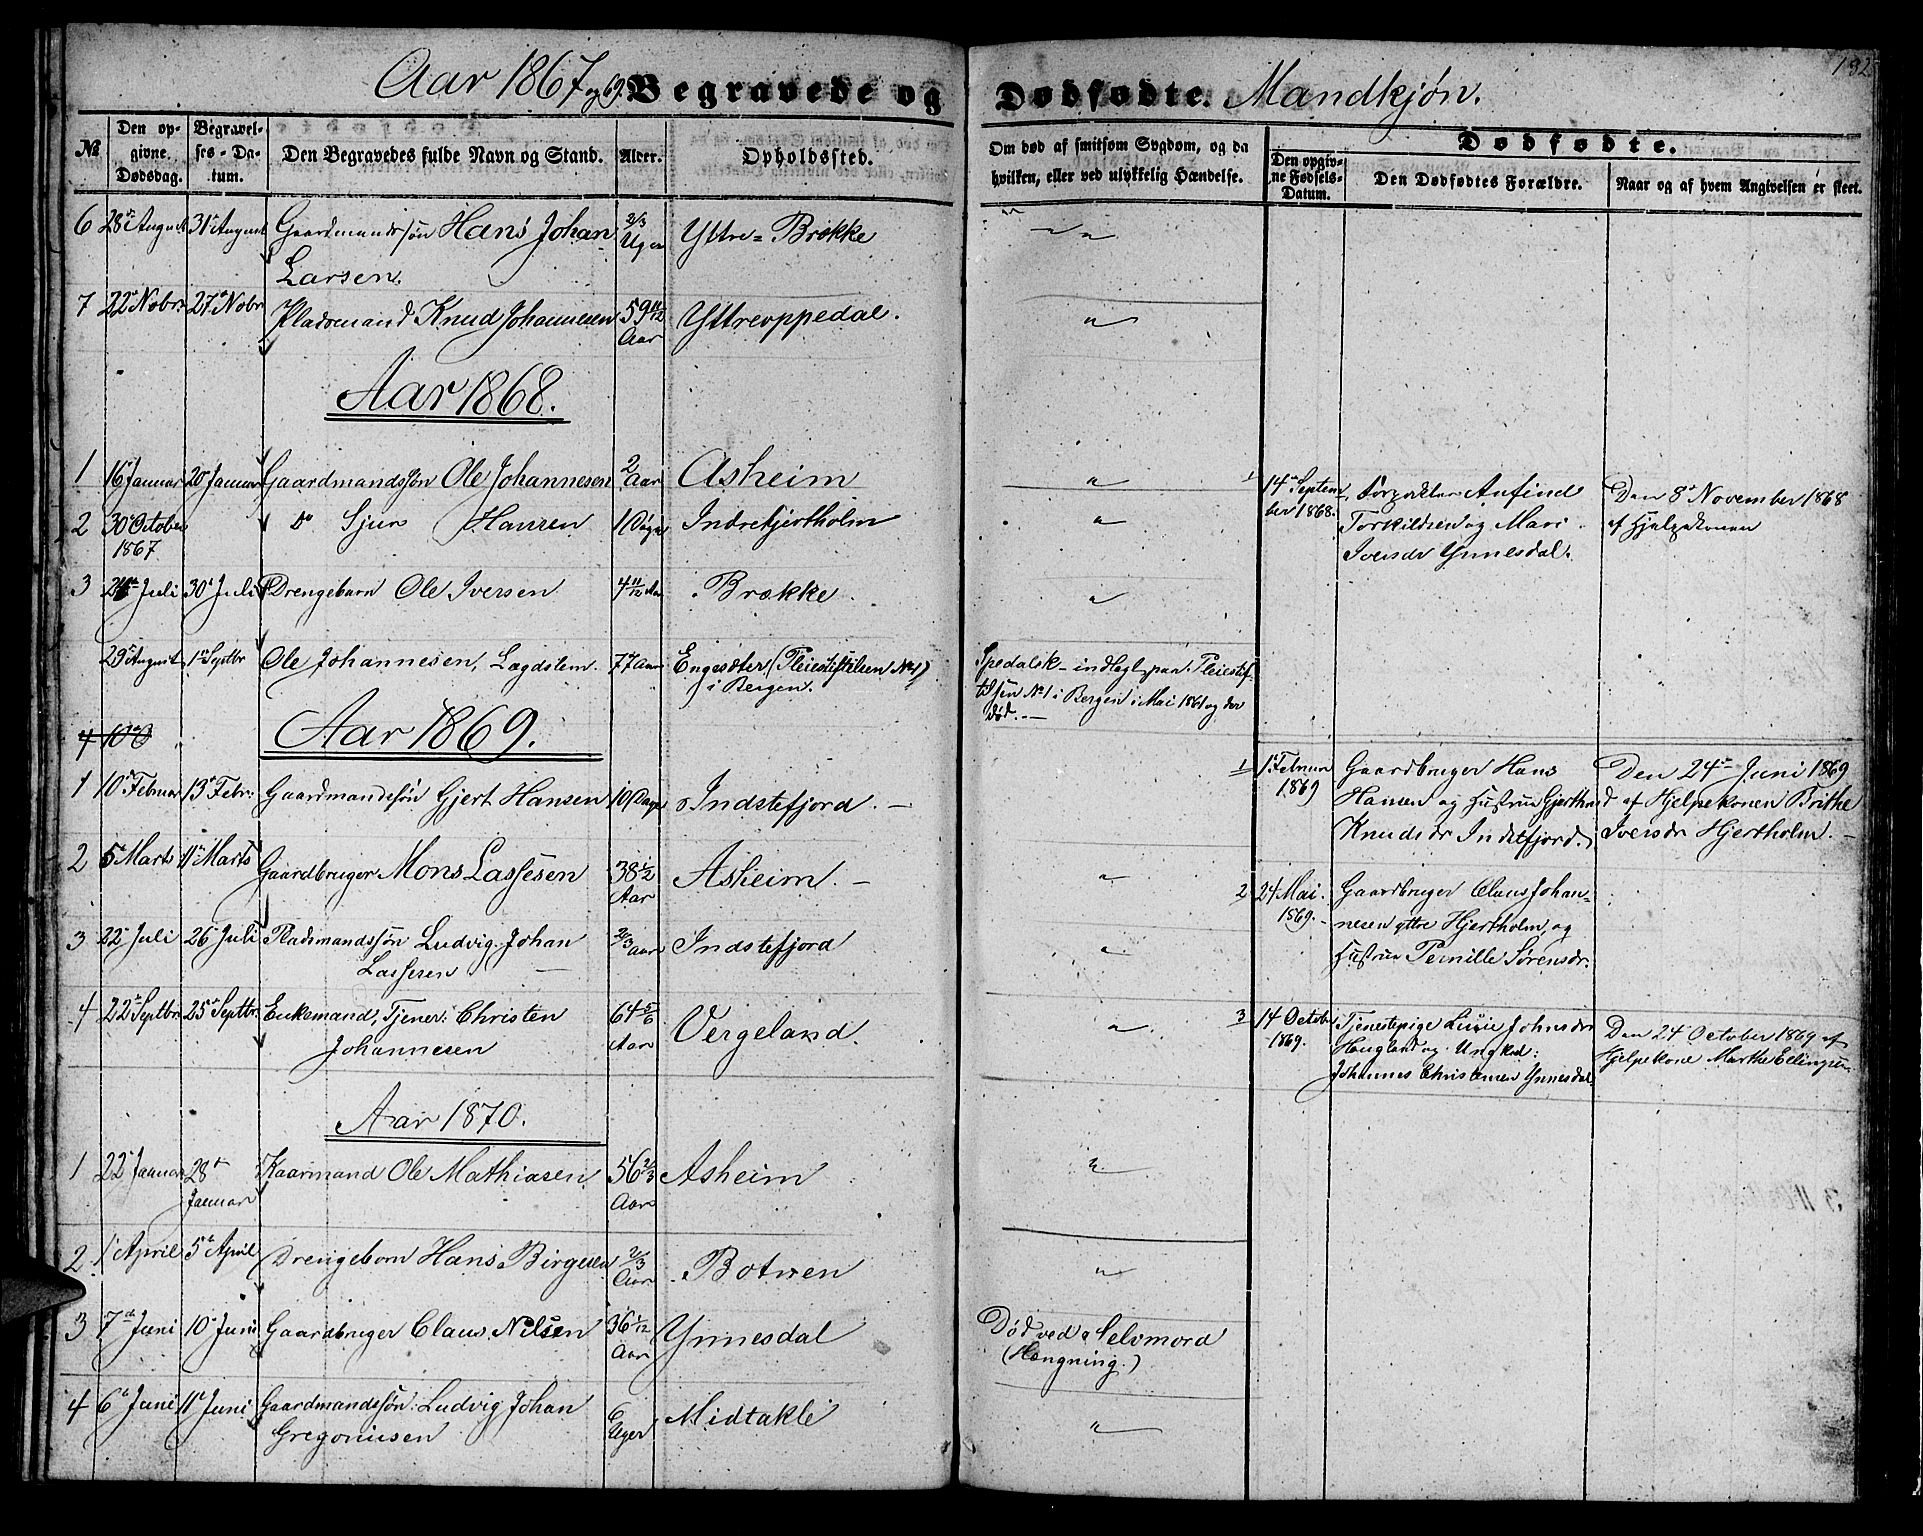 192
Aar 1867 og 69. Begravede og Dødfødte. Mandkjøn.
№
Den opgivne Dødsdag.
Begravelses-Datum.
Den Begravedes fulde Navn og Stand.
Alder.
Opholdssted.
Om død af smitsom Sygdom, og da
hvilken, eller ved ulykkelig Hændelse.
Dødfødte.
Den opgivne Fødsels-Datum.
Den Dødfødtes Forældre.
Naar og af hvem Angivelsen er skeet.
6 28de August 31te August Gaardmandssøn Hans Johan 2/3 Uger Yttre-Brække "
Larsen.
7 22de Nobr. 27de Nobr Pladsemand Knud Johannesen 59 11/12 Aar Yttreoppedal. "
Aar 1868.
1 16de Januar 20de Januar Gaardmandssøn Ole Johannesen 2 Aar Asheim "
2 30te October 1867 Do Sjur Hansen 1 Døgn Indrehjertholm "
3 24de Juli 30te Juli Drengebarn Ole Iversen 4 11/12 Aar Brække. "
29de August 1ste Septbr Ole Johannesen, Lægdslem. 77 Aar Engesæter (Pleiestiftelsen No 1)
i Bergen.
Spedalsk - indlagt paa Pleiestif-
telsen No 1 i Bergen i Mai 1861 og der
død. -
1 14de Septem
ber 1868.
Anfind
Torkildsen og Mari
Iversdr Ynnesdal.
Den 8de November 1868
af Hjelpekonen
4 10de
Aar 1869.
1 10de Februar 13de Febr: Gaardmandssøn Gjert Hansen 10 Dage Indstefjord. -
2 5 Marts 11te Marts Gaardbruger Mons Lassesen 38 1/2 Aar Asheim. - "
3 22de Juli 26de Juli Pladsmandssøn Ludvig Johan 2/3 Aar Indstefjord "
Lassesen -
4 22de Septbr. 25de Septbr. Enkemand, Tjener: Christen 64 5/6 Aar Vergeland. "
Johannesen
1 1ste Februar
1869
Gaardbruger Hans
Hansen og Hustru Gjertrud
Knudsdr Indstefjord.
Den 24de Juni 1869
af Hjelpekonen Brithe
Iversdr Hjertholm. -
2 24 Mai
1869. -
Gaardbruger Claus Johan-
nesen yttre Hjertholm, og
Hustrue Pernille Sørensdr.
3 14 October
1869.
Tjenestepige Lusie Johnsdr
Haugland og Ungkarl:
Johannes Christensen Ynnesdal
Den 24de October 1869 af
Hjelpekone Marthe Ellingsen
Aar 1870.
1 22de Januar 28de Januar Kaarmand Ole Mathiasen 56 2/3 Aar Asheim "
2 1ste April 5te April Drengebarn Hans Birgesen 2/3 Aar Botnen "
3 7de Juni 10de Juni Gaardbruger Claus Nilsen 36 1/12 Aar Ynnesdal Død ved Selvmord
(Hængning.)
4 6te Juni 11te Juni Gaardmandssøn: Ludvig Johan 6 Uger Midtakle "
Gregoriusen